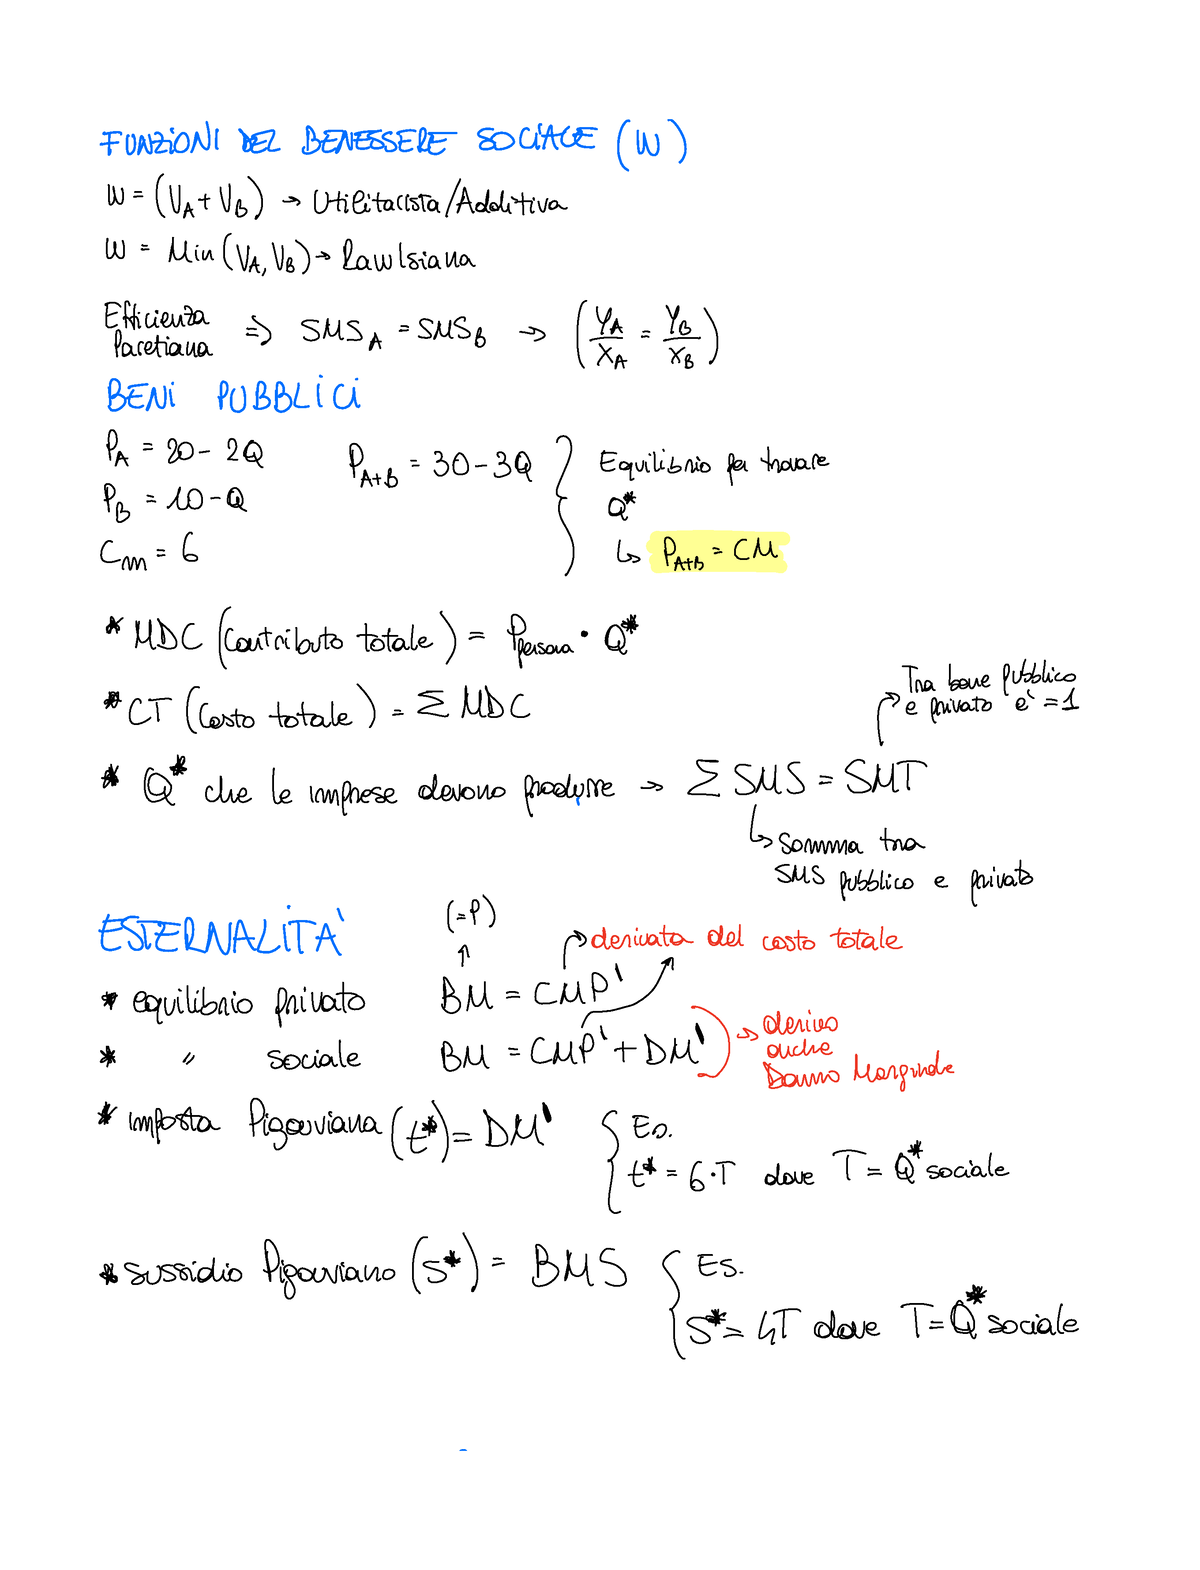 FUNZIONI DEL BENESSERE SOCIALE (W)
W = (VA + VB) → Utilitarista/Additiva
W = Min (VA, VB) → Rawlsiana
Efficienza Paretiana ⇒ SMS A = SMS B → (YA/XA = YB/XB)
BENI PUBBLICI
PA = 20 - 2Q
PB = 10 - Q
Cm = 6
PA+B = 30 - 3Q } Equilibrio per trovare
Q*
↳ PA+B = CM
* MDC (Contributo totale) = Ppersona • Q*
* CT (Costo totale) = Σ MDC
Tra bene pubblico
e privato è = 1
* Q* che le imprese devono produrre → Σ SMS = SMT
↳ Somma tra
SMS pubblico e privato
ESTERNALITA'
(=P)
derivata del costo totale
* equilibrio privato BM = CMP'
* " sociale BM = CMP' + DM'
→ derivo
anche
Danno Marginale
* imposta Pigouviana (t*) = DM'
{ Es.
t* = 6·T dove T = Q* sociale
* sussidio Pigouviano (S*) = BMS
{ Es.
S* = 4T dove T = Q* sociale